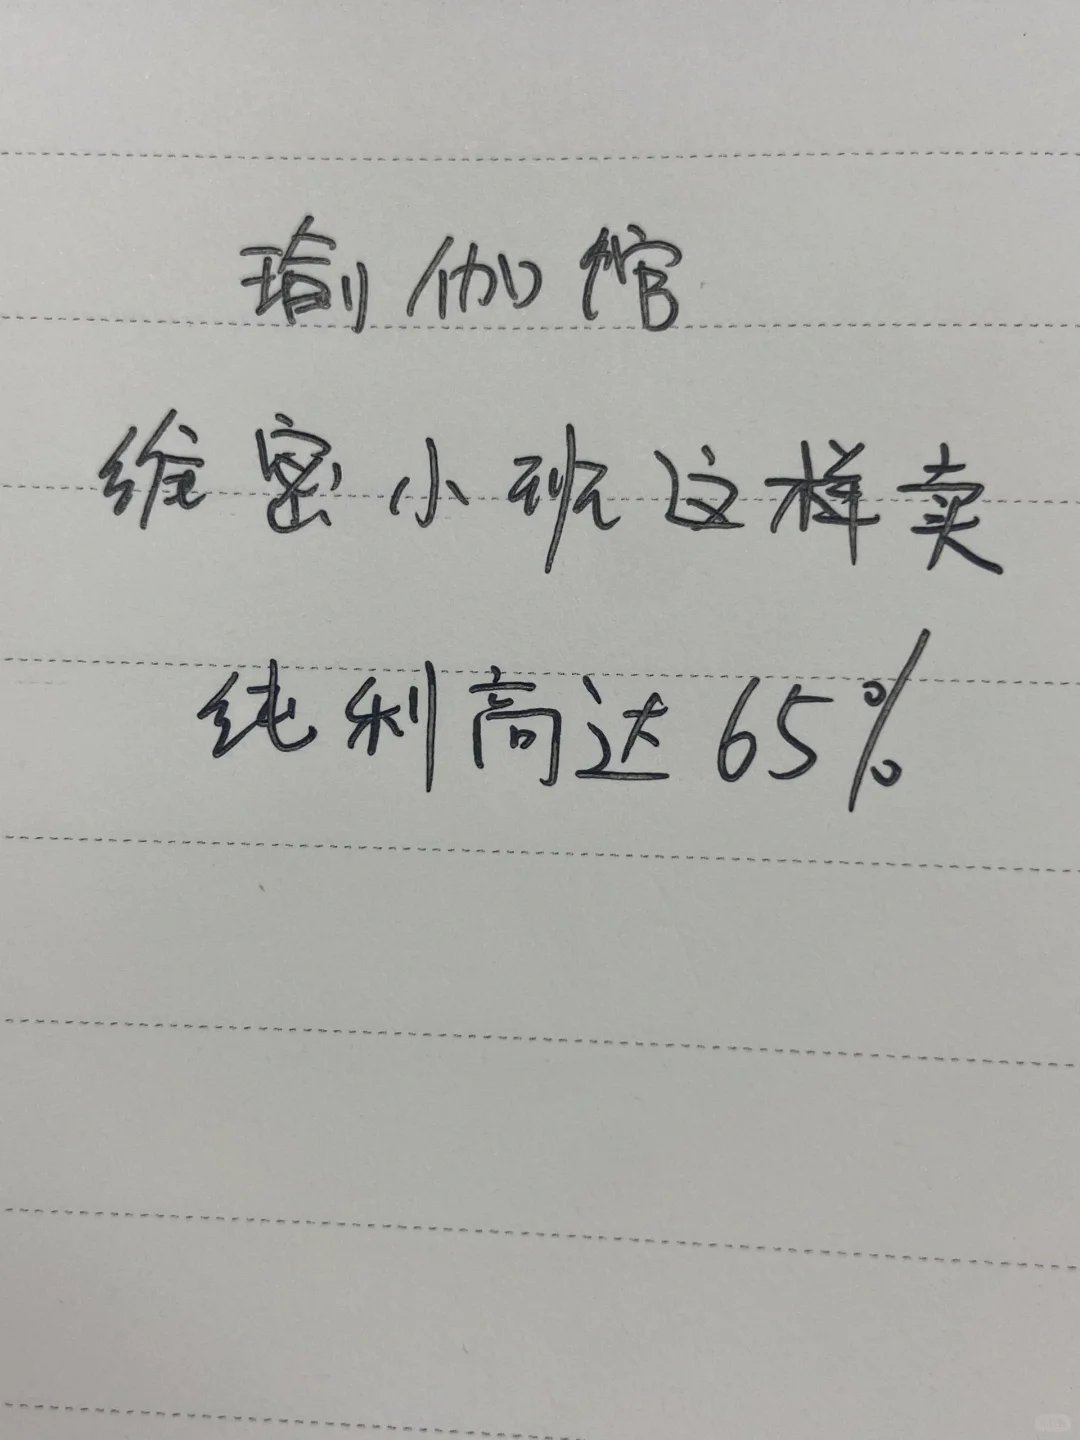 瑜伽馆
维密小班这样卖
纯利高达65%